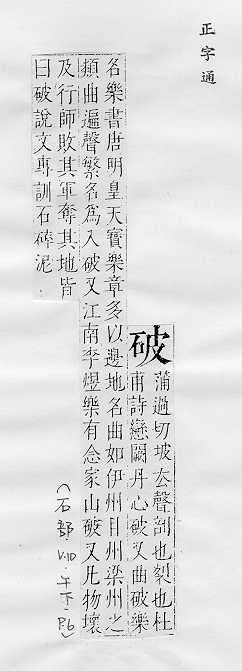 正字通
破
蒲過切坡去聲剖也裂也杜
甫詩戀闕丹心破又曲破樂
名樂書唐明皇天寶樂章多以邊地名曲如伊州甘州梁州之
類曲遍聲繁名為入破又江南李煜樂有念家山破又凡物壞
及行師敗其軍奪其地皆
曰破說文專訓石碎泥
(石部 V.10.午下.P.6)